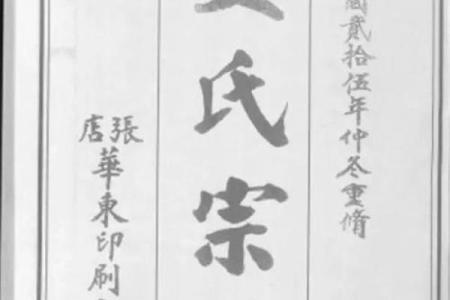 國貳拾伍年仲冬重脩
氏宗
張店華東印刷